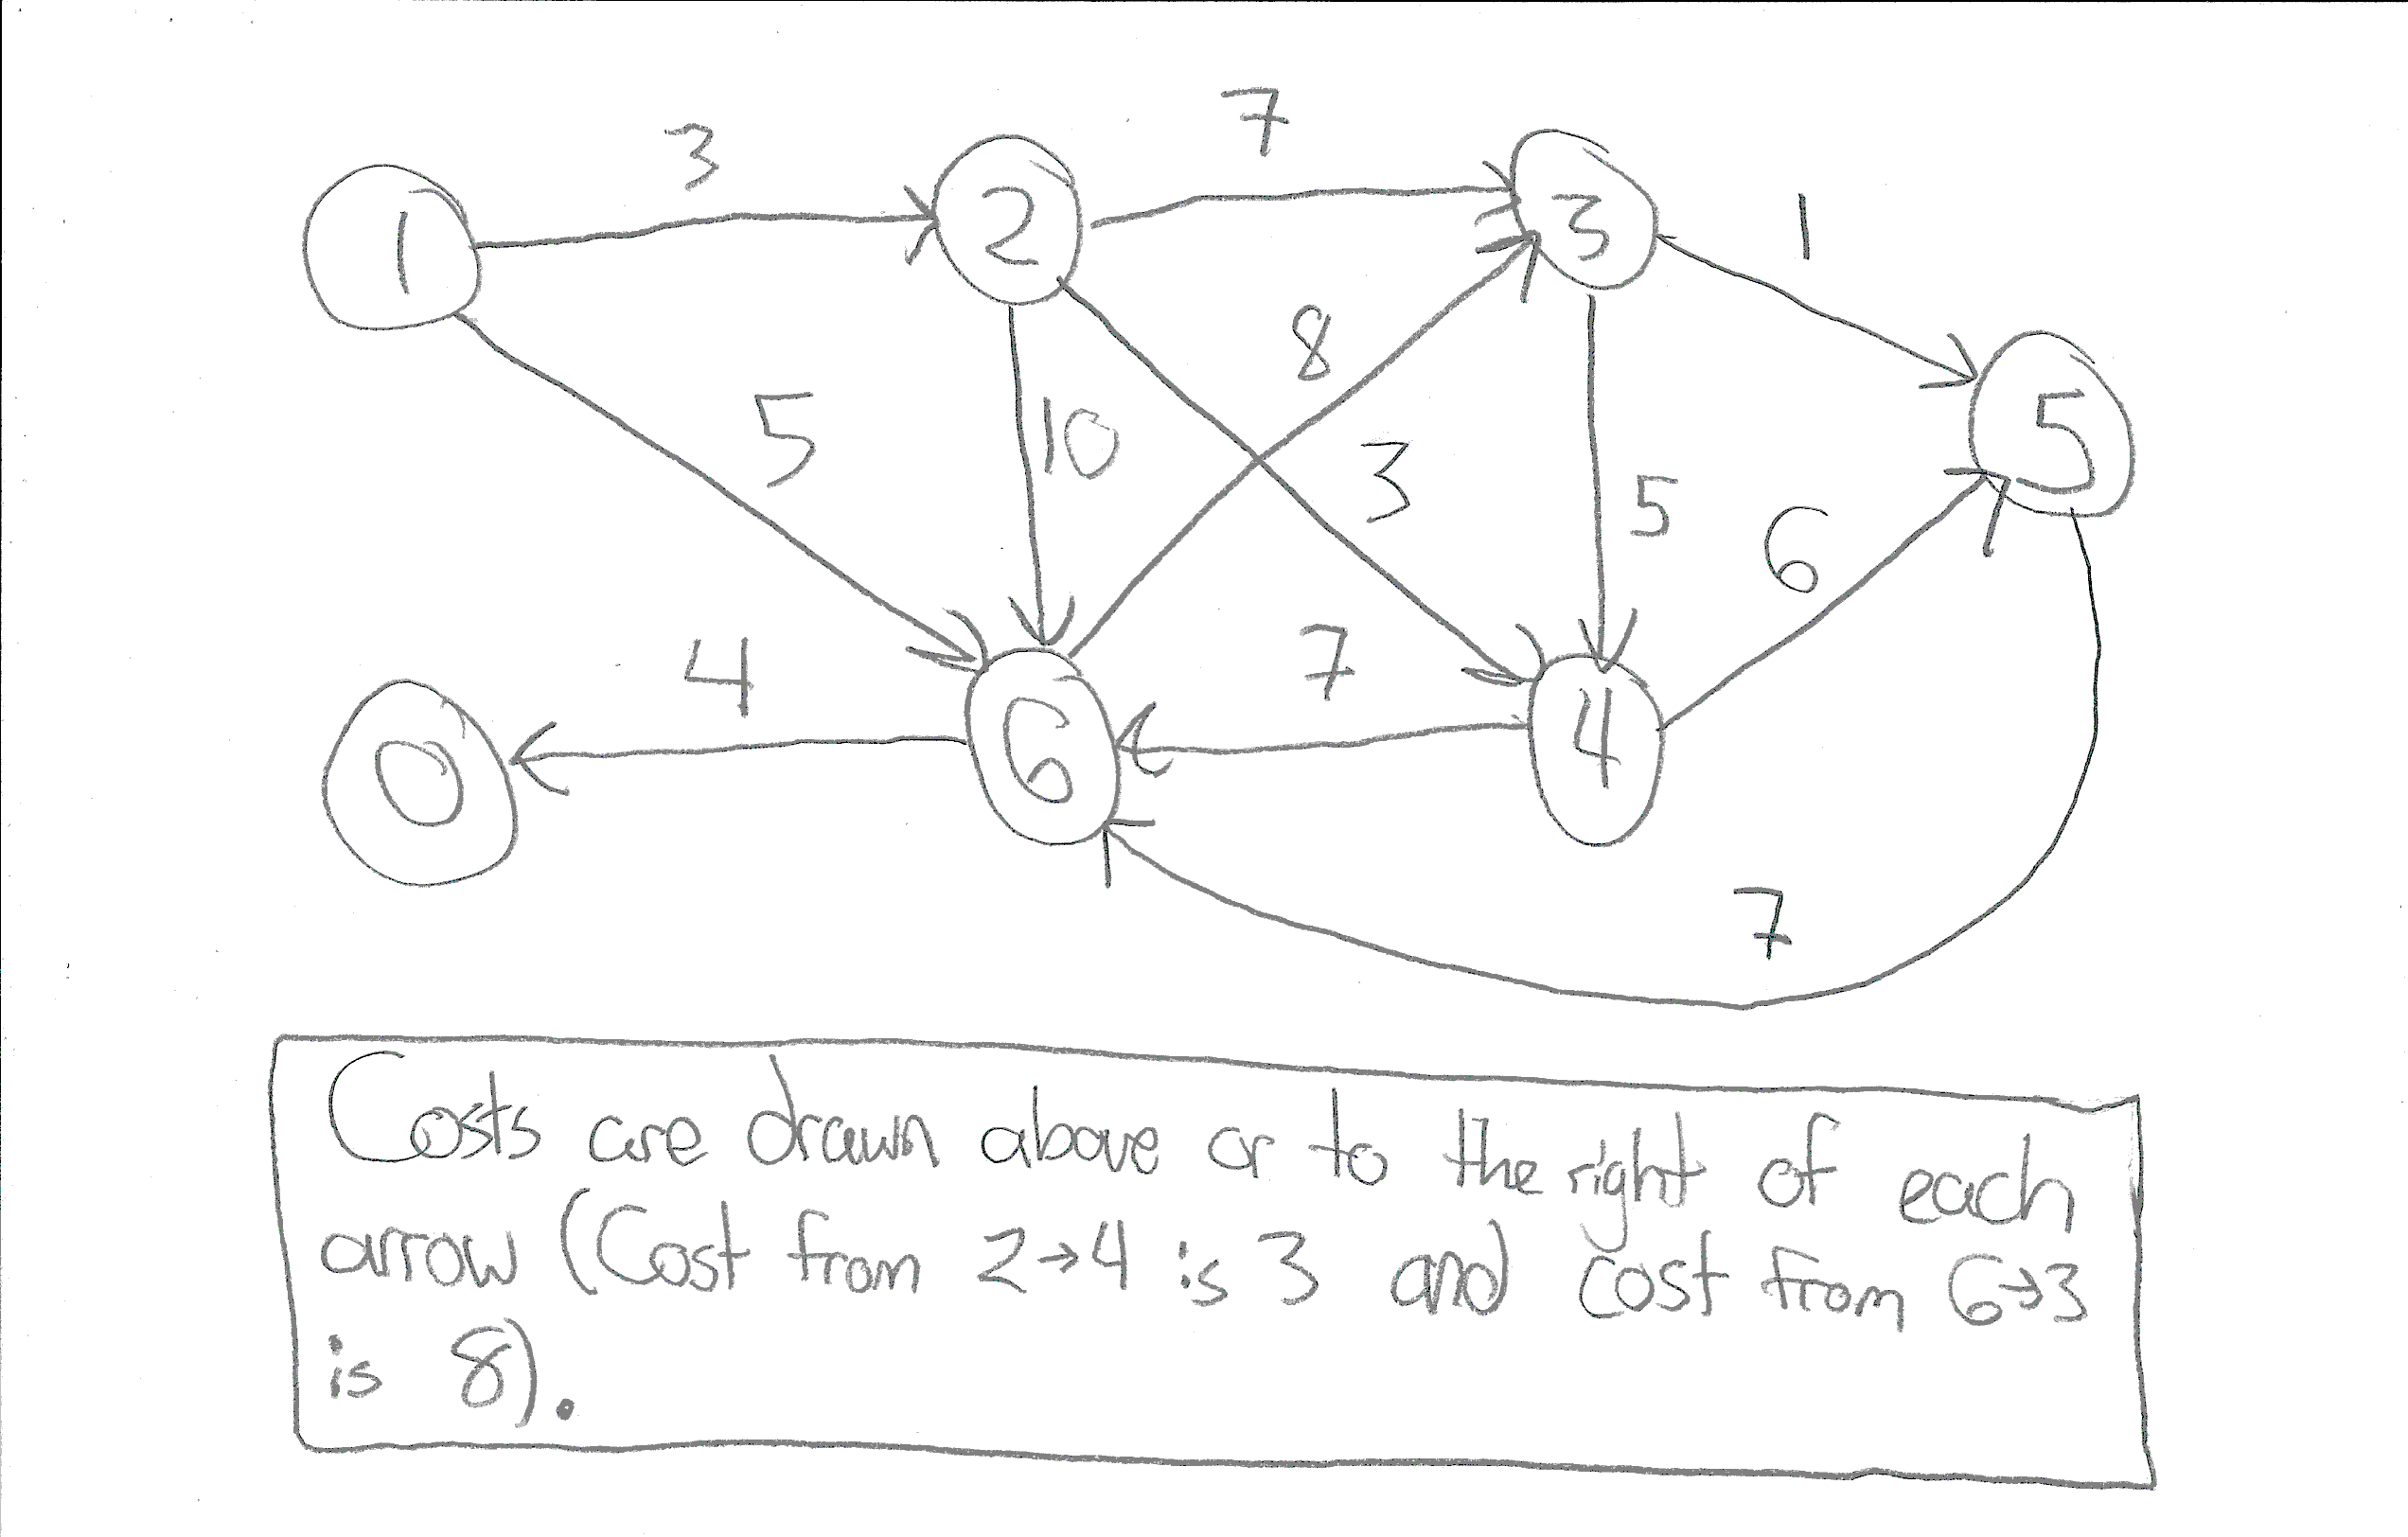 3
7
1
2
3
1
8
5
10
3
5
5
6
4
7
6
4
0
7
Costs are drawn above or to the right of each
arrow (Cost from 2→4 is 3 and cost from 6→3
is 8).